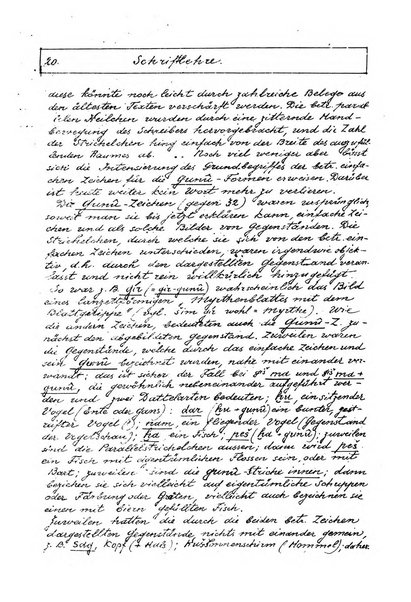 20. Schriftlehre.
diese könnte noch leicht durch zahlreiche Belege aus
den ältesten Texten verschärft werden. Die betr. paral-
len Keilchen wurden durch eine zitternde Hand-
bewegung des Schreibers hervorgebracht, und die Zahl
der Strichelchen hing einfach von der Breite des auszufül-
lenden Raumes ab. ... Noch viel weniger aber lässt
sich die Intensivierung des Grundbegriffes der betr. einfa-
chen Zeichen für die Gunû-Formen erweisen. Darüber
ist heute weiter kein Wort mehr zu verlieren.
Die Gunû-Zeichen (gegen 32) waren ursprünglich,
soweit man sie bis jetzt erklären kann, einfache Zei-
chen und als solche Bilder von Gegenständen. Die
Strichelchen, durch welche sie sich von den betr. ein-
fachen Zeichen unterschieden, waren irgendwie objek-
tiv, d.h. durch den dargestellten Gegenstand veran-
lasst und nicht rein willkürlich hinzugefügt.
So war z.B. gir (= gir-gunû) wahrscheinlich das Bild
eines Myrthenblattes mit dem
Blattgerippe (vgl. šim gir wohl = Myrthe). Wie
die andern Zeichen, bedeuteten auch die Gunû-Z. zu-
nächst den abgebildeten Gegenstand. Zuweilen waren
die Gegenstände, welche durch das einfache Zeichen und
sein Gunû bezeichnet wurden, nahe mit einander ver-
wandt: das ist sicher der Fall bei giš ma und giš ma +
gunû, die gewöhnlich nebeneinander aufgeführt wer-
den und zwei Dattelarten bedeuten; hu, ein sitzender
Vogel (Ente oder Gans): dar (hu + gunû) ein bunter, gest-
reifter Vogel (?), nam, ein fliegender Vogel (Gegenstand
der Vogelschau); ha ein Fisch, peš (ha + gunû); zuweilen
sind die Parallelstrichelchen aussen; dann wird peš
ein Fisch mit eigentümlichen Flossen sein, oder mit
Bart; zuweilen sind die gunû-Striche innen; dann
beziehen sie sich vielleicht auf eigentümliche Schuppen
oder Färbung oder Gräten, vielleicht auch bezeichnen sie
einen mit Eiern gefüllten Fisch.
Zuweilen hatten die durch die beiden betr. Zeichen
dargestellten Gegenstände nichts mit einander gemein,
z.B. Sag, Kopf (+ Hals); (Hommel); daher